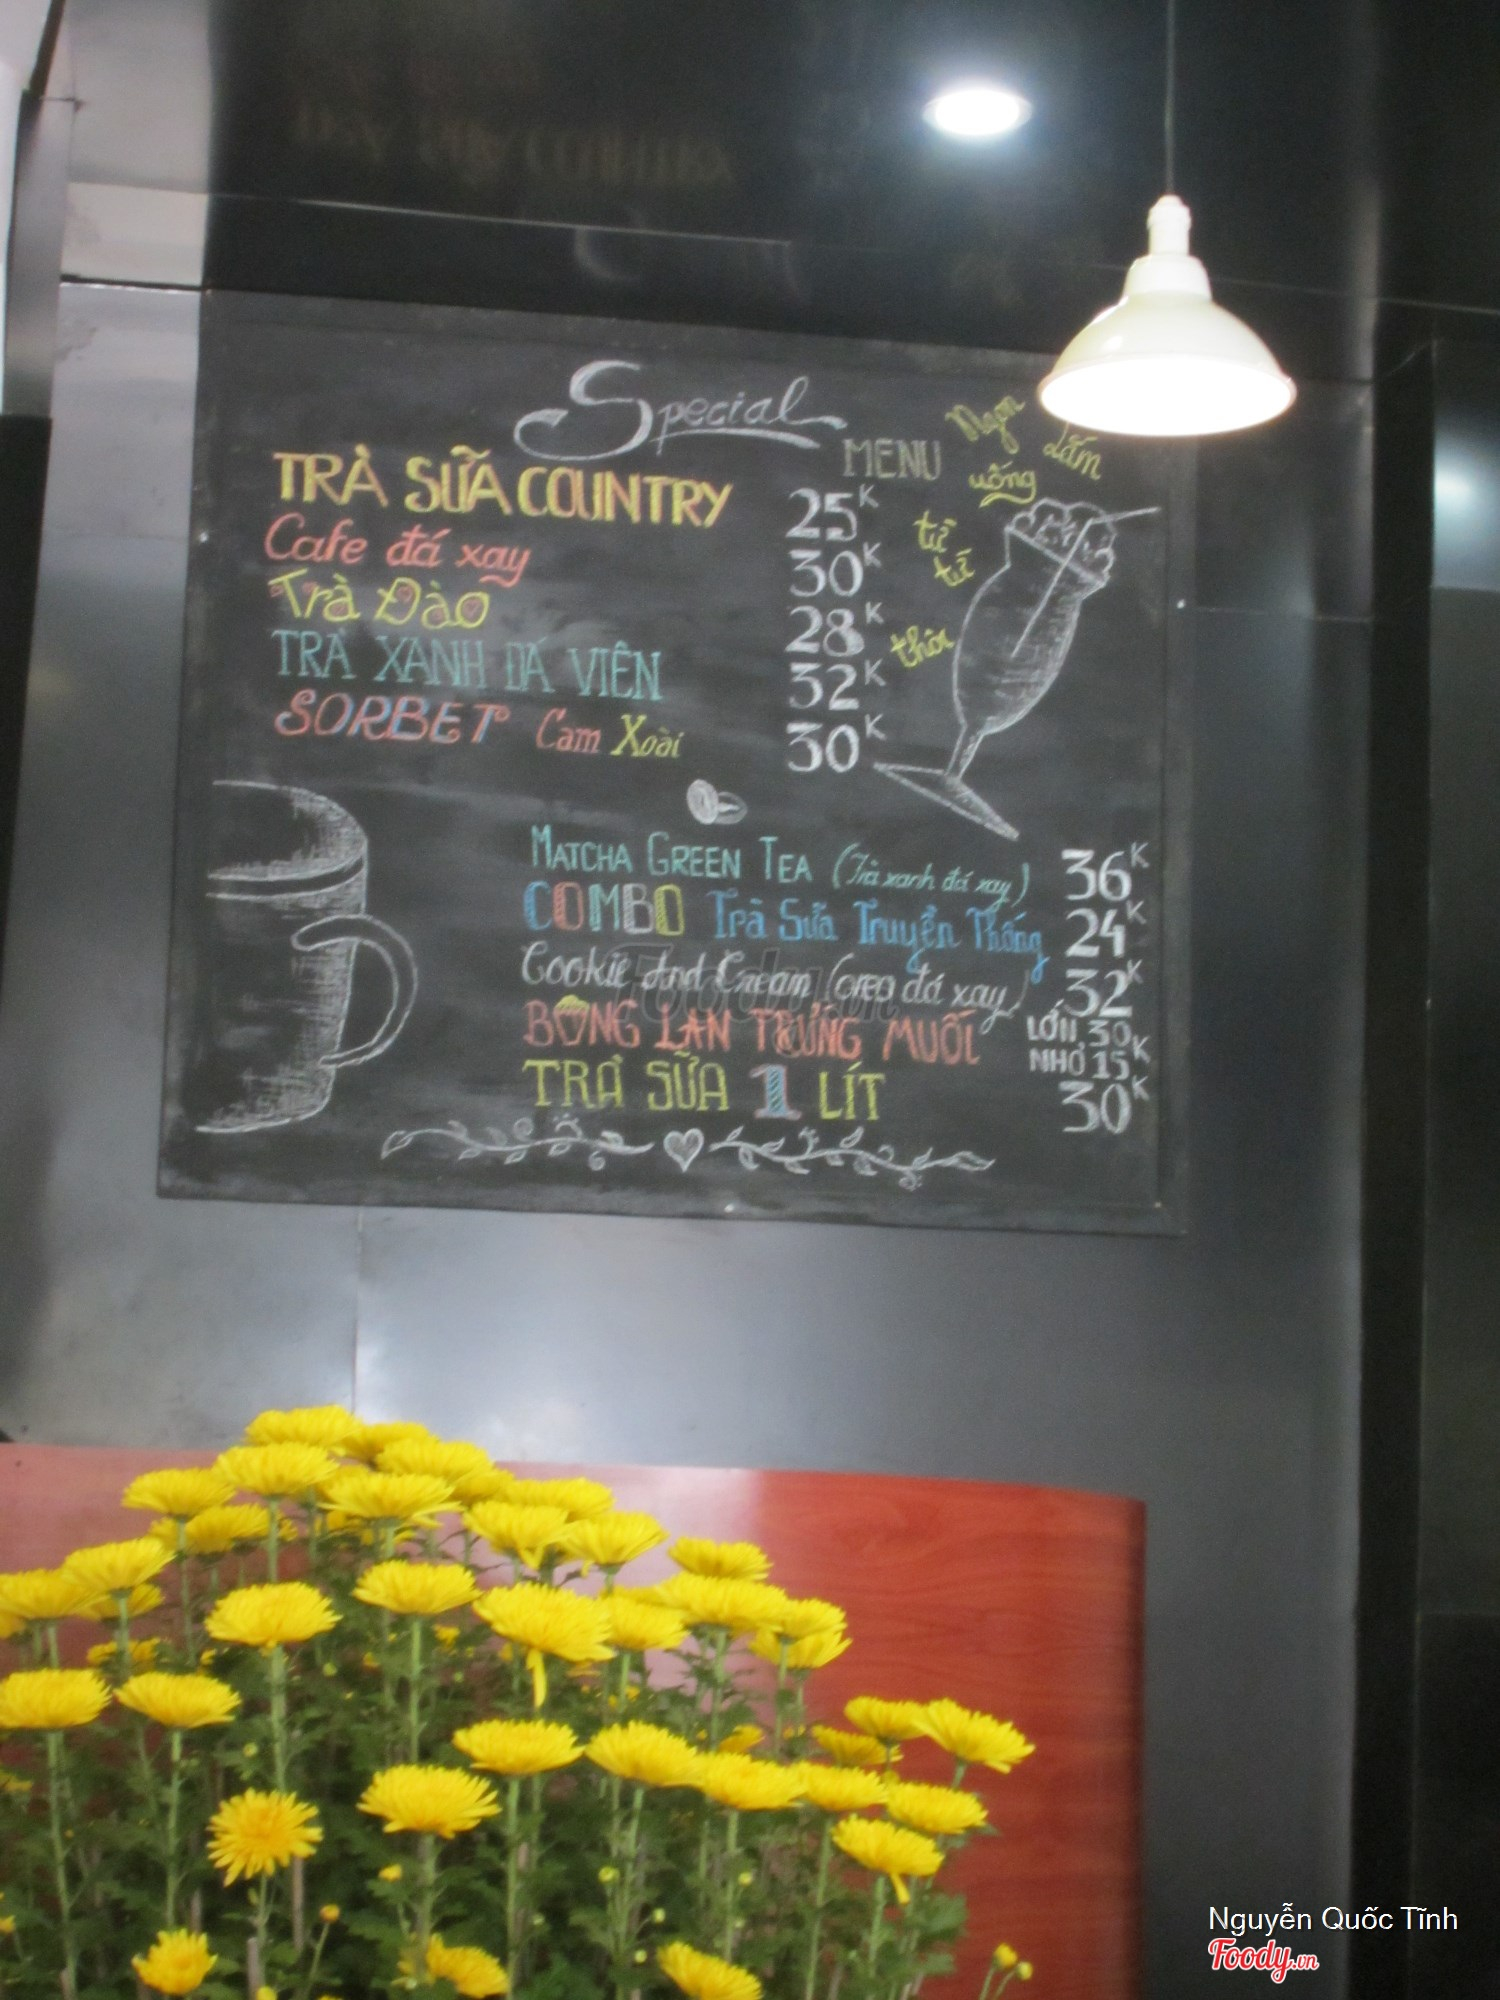 Special
MENU
Ngon Lắm
uống
từ
từ
thôi
TRÀ SỮA COUNTRY 25K
Cafe đá xay 30K
Trà Đào 28K
TRÀ XANH ĐÁ VIÊN 32K
SORBET Cam Xoài 30K
MATCHA GREEN TEA (Trà xanh đá xay) 36K
COMBO Trà Sữa Truyền Thống 24K
Cookie And Cream (oreo đá xay) 32K
BÔNG LAN TRỨNG MUỐI LỚN 30K
NHỎ 15K
TRÀ SỮA 1 LÍT 30K
Foody.vn
Nguyễn Quốc Tĩnh
Foody.vn